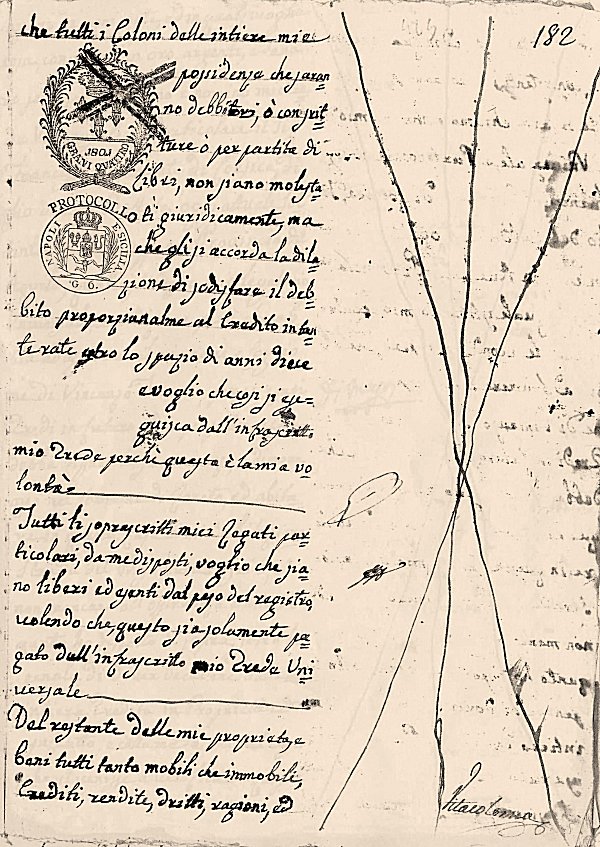 182
che tutti i Coloni delle intiere mie
possidenze che saran
no debbitori, ò con scrit=
ture ò per partita di
libri, non siano molesta
ti giuridicamente, ma
che gli si accorda la dila=
zione di sodisfare il deb=
bito proporzionalme al Credito in tan
te rate entro lo spazio di anni diece
e voglio che così si ese=
guisca dall'infrascritto
mio Erede perchè questa è la mia vo=
lontà
Tutti li soprascritti miei Legati par=
ticolari, da me disposti, voglio che sia=
no liberi ed esenti dal peso del registro,
volendo che, questo sia solamente pa=
gato dall'infrascritto mio Erede Uni=
versale
Del restante delle mie proprietà, e
beni tutti tanto mobili che immobili,
Crediti, rendite, dritti, ragioni, ed
Vitacolonna
GRANI QUATTRO
PROTOCOLLO
NAPOLI E SICILIA
G. 6.